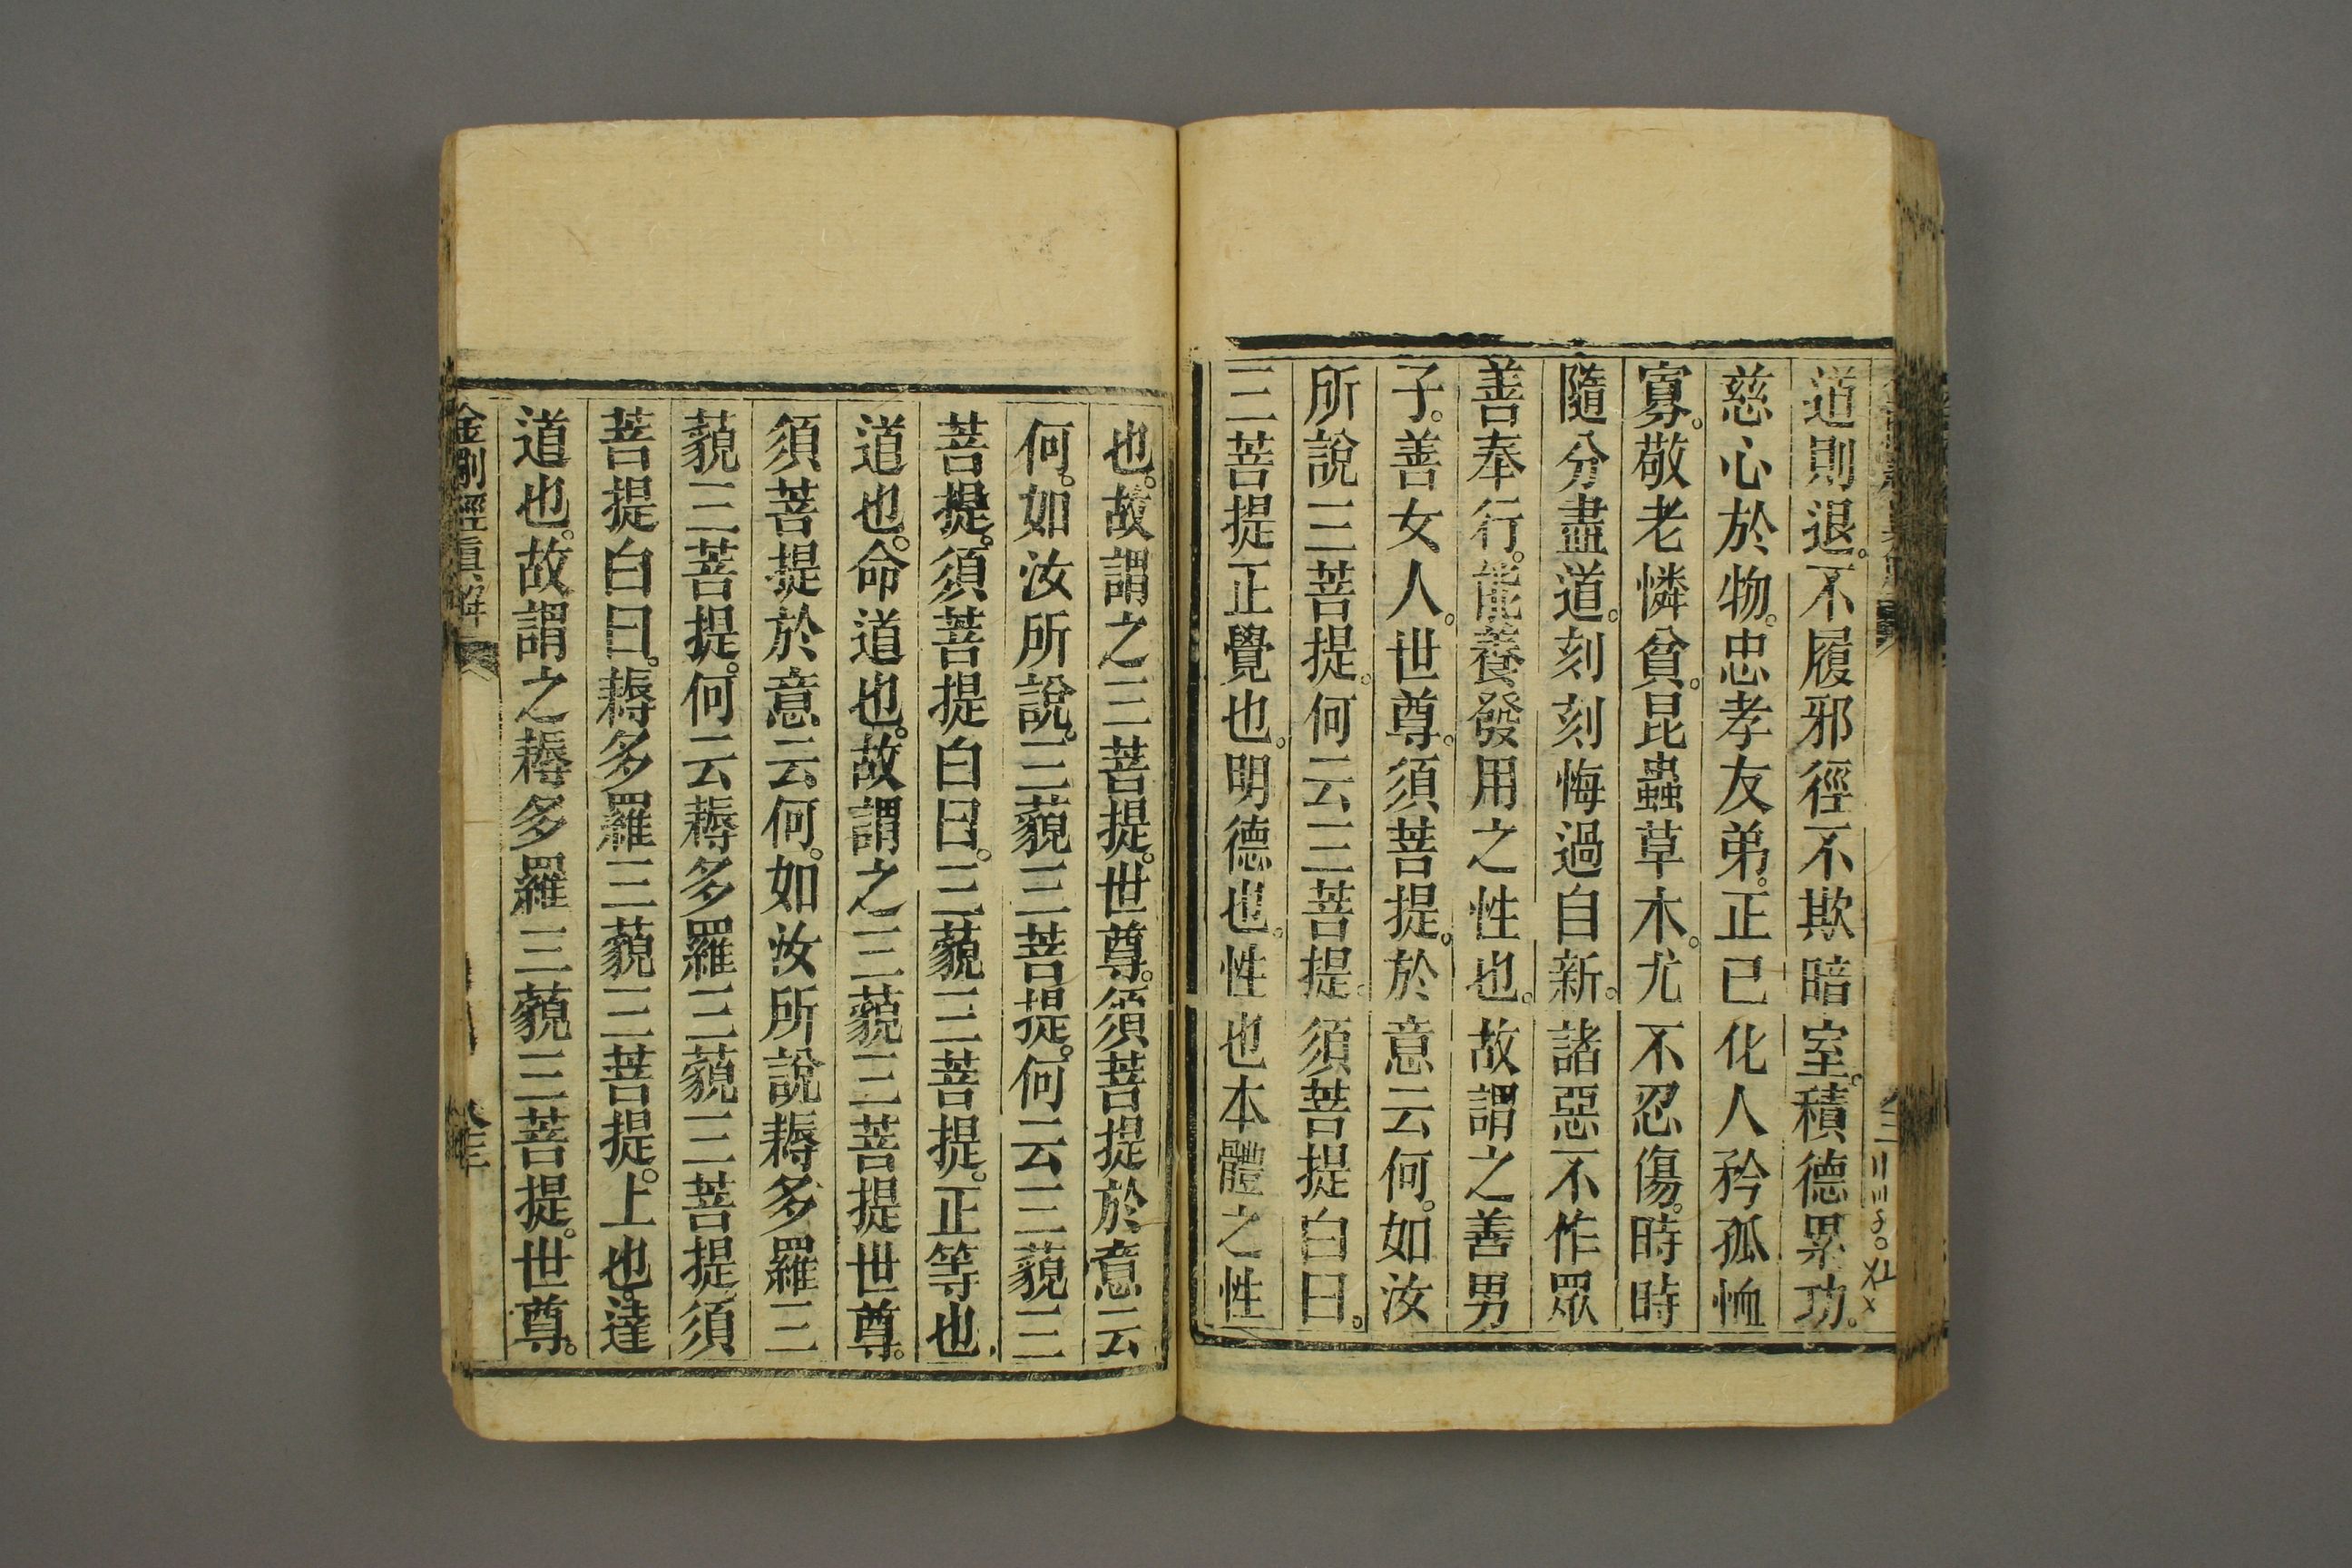 道則退。不履邪徑不欺暗室。積德累功。
慈心於物。忠孝友弟。正己化人矜孤恤
寡。敬老憐貧。昆蟲草木。尤不忍傷。時時
隨分盡道。刻刻悔過自新。諸惡不作眾
善奉行。能養發用之性也。故謂之善男
子。善女人。世尊。須菩提。於意云何。如汝
所說三菩提。何云三菩提。須菩提白曰。
三菩提正覺也。明德也。性也本體之性
也。故謂之三菩提。世尊。須菩提於意云
何。如汝所說。三藐三菩提。何云三藐三
菩提。須菩提白曰。三藐三菩提。正等也。
道也。命道也。故謂之三藐三菩提世尊。
須菩提於意云何。如汝所說耨多羅三
藐三菩提。何云耨多羅三藐三菩提須
菩提白曰。耨多羅三藐三菩提。上也。達
道也。故謂之耨多羅三藐三菩提。世尊。
金剛經真解